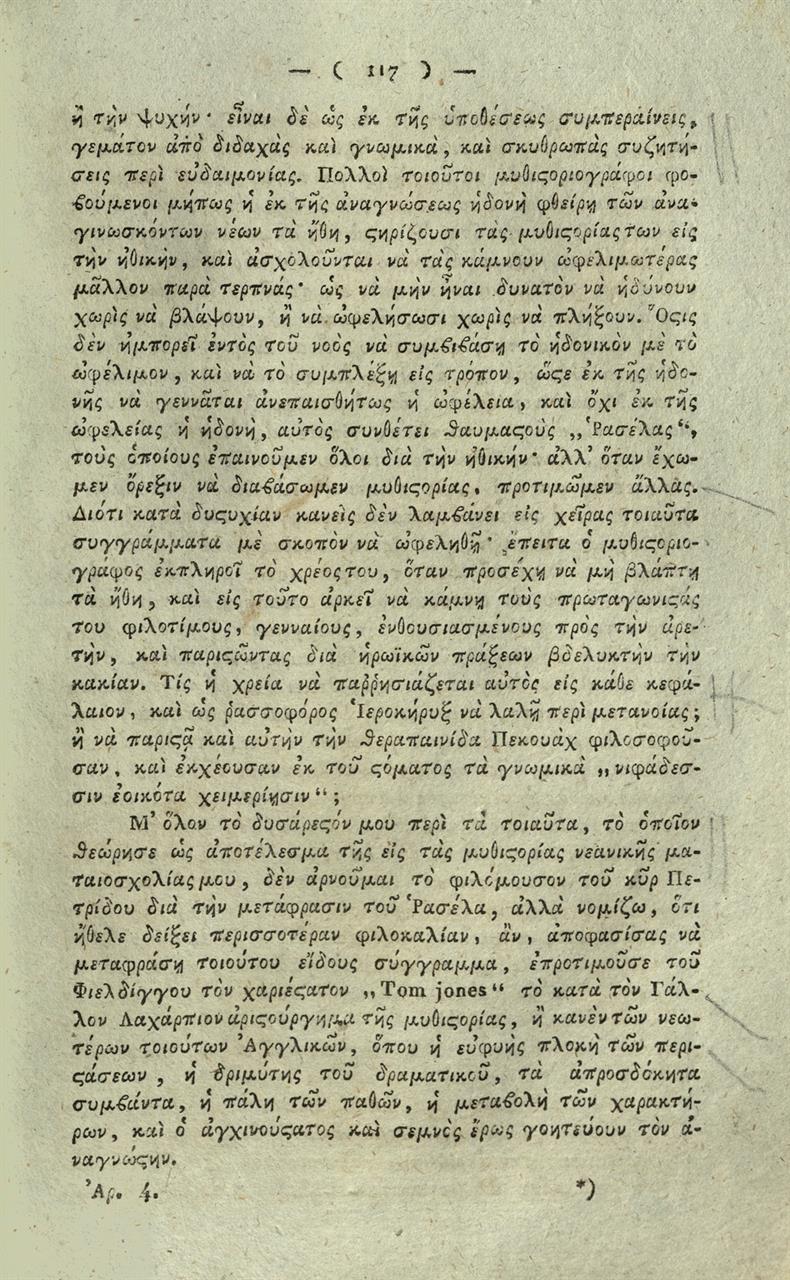 — ( 117 ) —
ἢ τὴν ψυχήν· εἶναι δὲ ὡς ἐκ τῆς ὑποθέσεως συμπεραίνεις,
γεμάτον ἀπὸ διδαχὰς καὶ γνωμικὰ, καὶ σκυθρωπὰς συζητή-
σεις περὶ εὐδαιμονίας. Πολλοὶ τοιοῦτοι μυθιϛοριογράφοι φο-
βούμενοι μήπως ἡ ἐκ τῆς ἀναγνώσεως ἡδονὴ φθείρῃ τῶν ἀνα-
γινωσκόντων νέων τὰ ἤθη, ϛηρίζουσι τὰς μυθιϛορίας των εἰς
τὴν ἠθικὴν, καὶ ἀσχολοῦνται νὰ τὰς κάμνουν ὠφελιμωτέρας
μᾶλλον παρὰ τερπνάς· ὡς νὰ μὴν ἦναι δυνατὸν νὰ ἡδύνουν
χωρὶς νὰ βλάψουν, ἢ νὰ ὠφελήσωσι χωρὶς νὰ πλήξουν. Ὅϛις
δὲν ἠμπορεῖ ἐντὸς τοῦ νοὸς νὰ συμβιβάσῃ τὸ ἡδονικὸν μὲ τὸ
ὠφέλιμον, καὶ νὰ τὸ συμπλέξῃ εἰς τρόπον, ὥϛε ἐκ τῆς ἡδο-
νῆς νὰ γεννᾶται ἀνεπαισθήτως ἡ ὠφέλεια, καὶ ὄχι ἐκ τῆς
ὠφελείας ἡ ἡδονὴ, αὐτὸς συνθέτει θαυμαϛοὺς „Ῥασέλας“,
τοὺς ὁποίους ἐπαινοῦμεν ὅλοι διὰ τὴν ἠθικήν· ἀλλ' ὅταν ἔχω-
μεν ὄρεξιν νὰ διαβάσωμεν μυθιϛορίας, προτιμῶμεν ἄλλας.
Διότι κατὰ δυϛυχίαν κανεὶς δὲν λαμβάνει εἰς χεῖρας τοιαῦτα
συγγράμματα μὲ σκοπὸν νὰ ὠφεληθῇ· ἔπειτα ὁ μυθιϛοριο-
γράφος ἐκπληροῖ τὸ χρέος του, ὅταν προσέχῃ νὰ μὴ βλάπτῃ
τὰ ἤθη, καὶ εἰς τοῦτο ἀρκεῖ νὰ κάμνῃ τοὺς πρωταγωνιϛάς
του φιλοτίμους, γενναίους, ἐνθουσιασμένους πρὸς τὴν ἀρε-
τὴν, καὶ παριϛῶντας διὰ ἡρωϊκῶν πράξεων βδελυκτὴν τὴν
κακίαν. Τίς ἡ χρεία νὰ παῤῥησιάζεται αὐτὸς εἰς κάθε κεφά-
λαιον, καὶ ὡς ῥασσοφόρος Ἱεροκήρυξ νὰ λαλῇ περὶ μετανοίας;
ἢ νὰ παριϛᾷ καὶ αὐτὴν τὴν θεραπαινίδα Πεκουὰχ φιλοσοφοῦ-
σαν, καὶ ἐκχέουσαν ἐκ τοῦ ϛόματος τὰ γνωμικὰ „νιφάδεσ-
σιν ἐοικότα χειμερίῃσιν“;
Μ' ὅλον τὸ δυσάρεϛόν μου περὶ τὰ τοιαῦτα, τὸ ὁποῖον
θεώρησε ὡς ἀποτέλεσμα τῆς εἰς τὰς μυθιϛορίας νεανικῆς μα-
ταιοσχολίας μου, δὲν ἀρνοῦμαι τὸ φιλόμουσον τοῦ κὺρ Πε-
τρίδου διὰ τὴν μετάφρασιν τοῦ Ῥασέλα, ἀλλὰ νομίζω, ὅτι
ἤθελε δείξει περισσοτέραν φιλοκαλίαν, ἂν, ἀποφασίσας νὰ
μεταφράσῃ τοιούτου εἴδους σύγγραμμα, ἐπροτιμοῦσε τοῦ
Φιελδίγγου τὸν χαριέϛατον „Tom jones“ τὸ κατὰ τὸν Γάλ-
λον Λαχάρπιον ἀριϛούργημα τῆς μυθιϛορίας, ἢ κανὲν τῶν νεω-
τέρων τοιούτων Ἀγγλικῶν, ὅπου ἡ εὐφυὴς πλοκὴ τῶν περι-
ϛάσεων, ἡ δριμύτης τοῦ δραματικοῦ, τὰ ἀπροσδόκητα
συμβάντα, ἡ πάλη τῶν παθῶν, ἡ μεταβολὴ τῶν χαρακτή-
ρων, καὶ ὁ ἀγχινούϛατος καὶ σεμνὸς ἔρως γοητεύουν τὸν ἀ-
ναγνώϛην.
Ἀρ. 4. *)